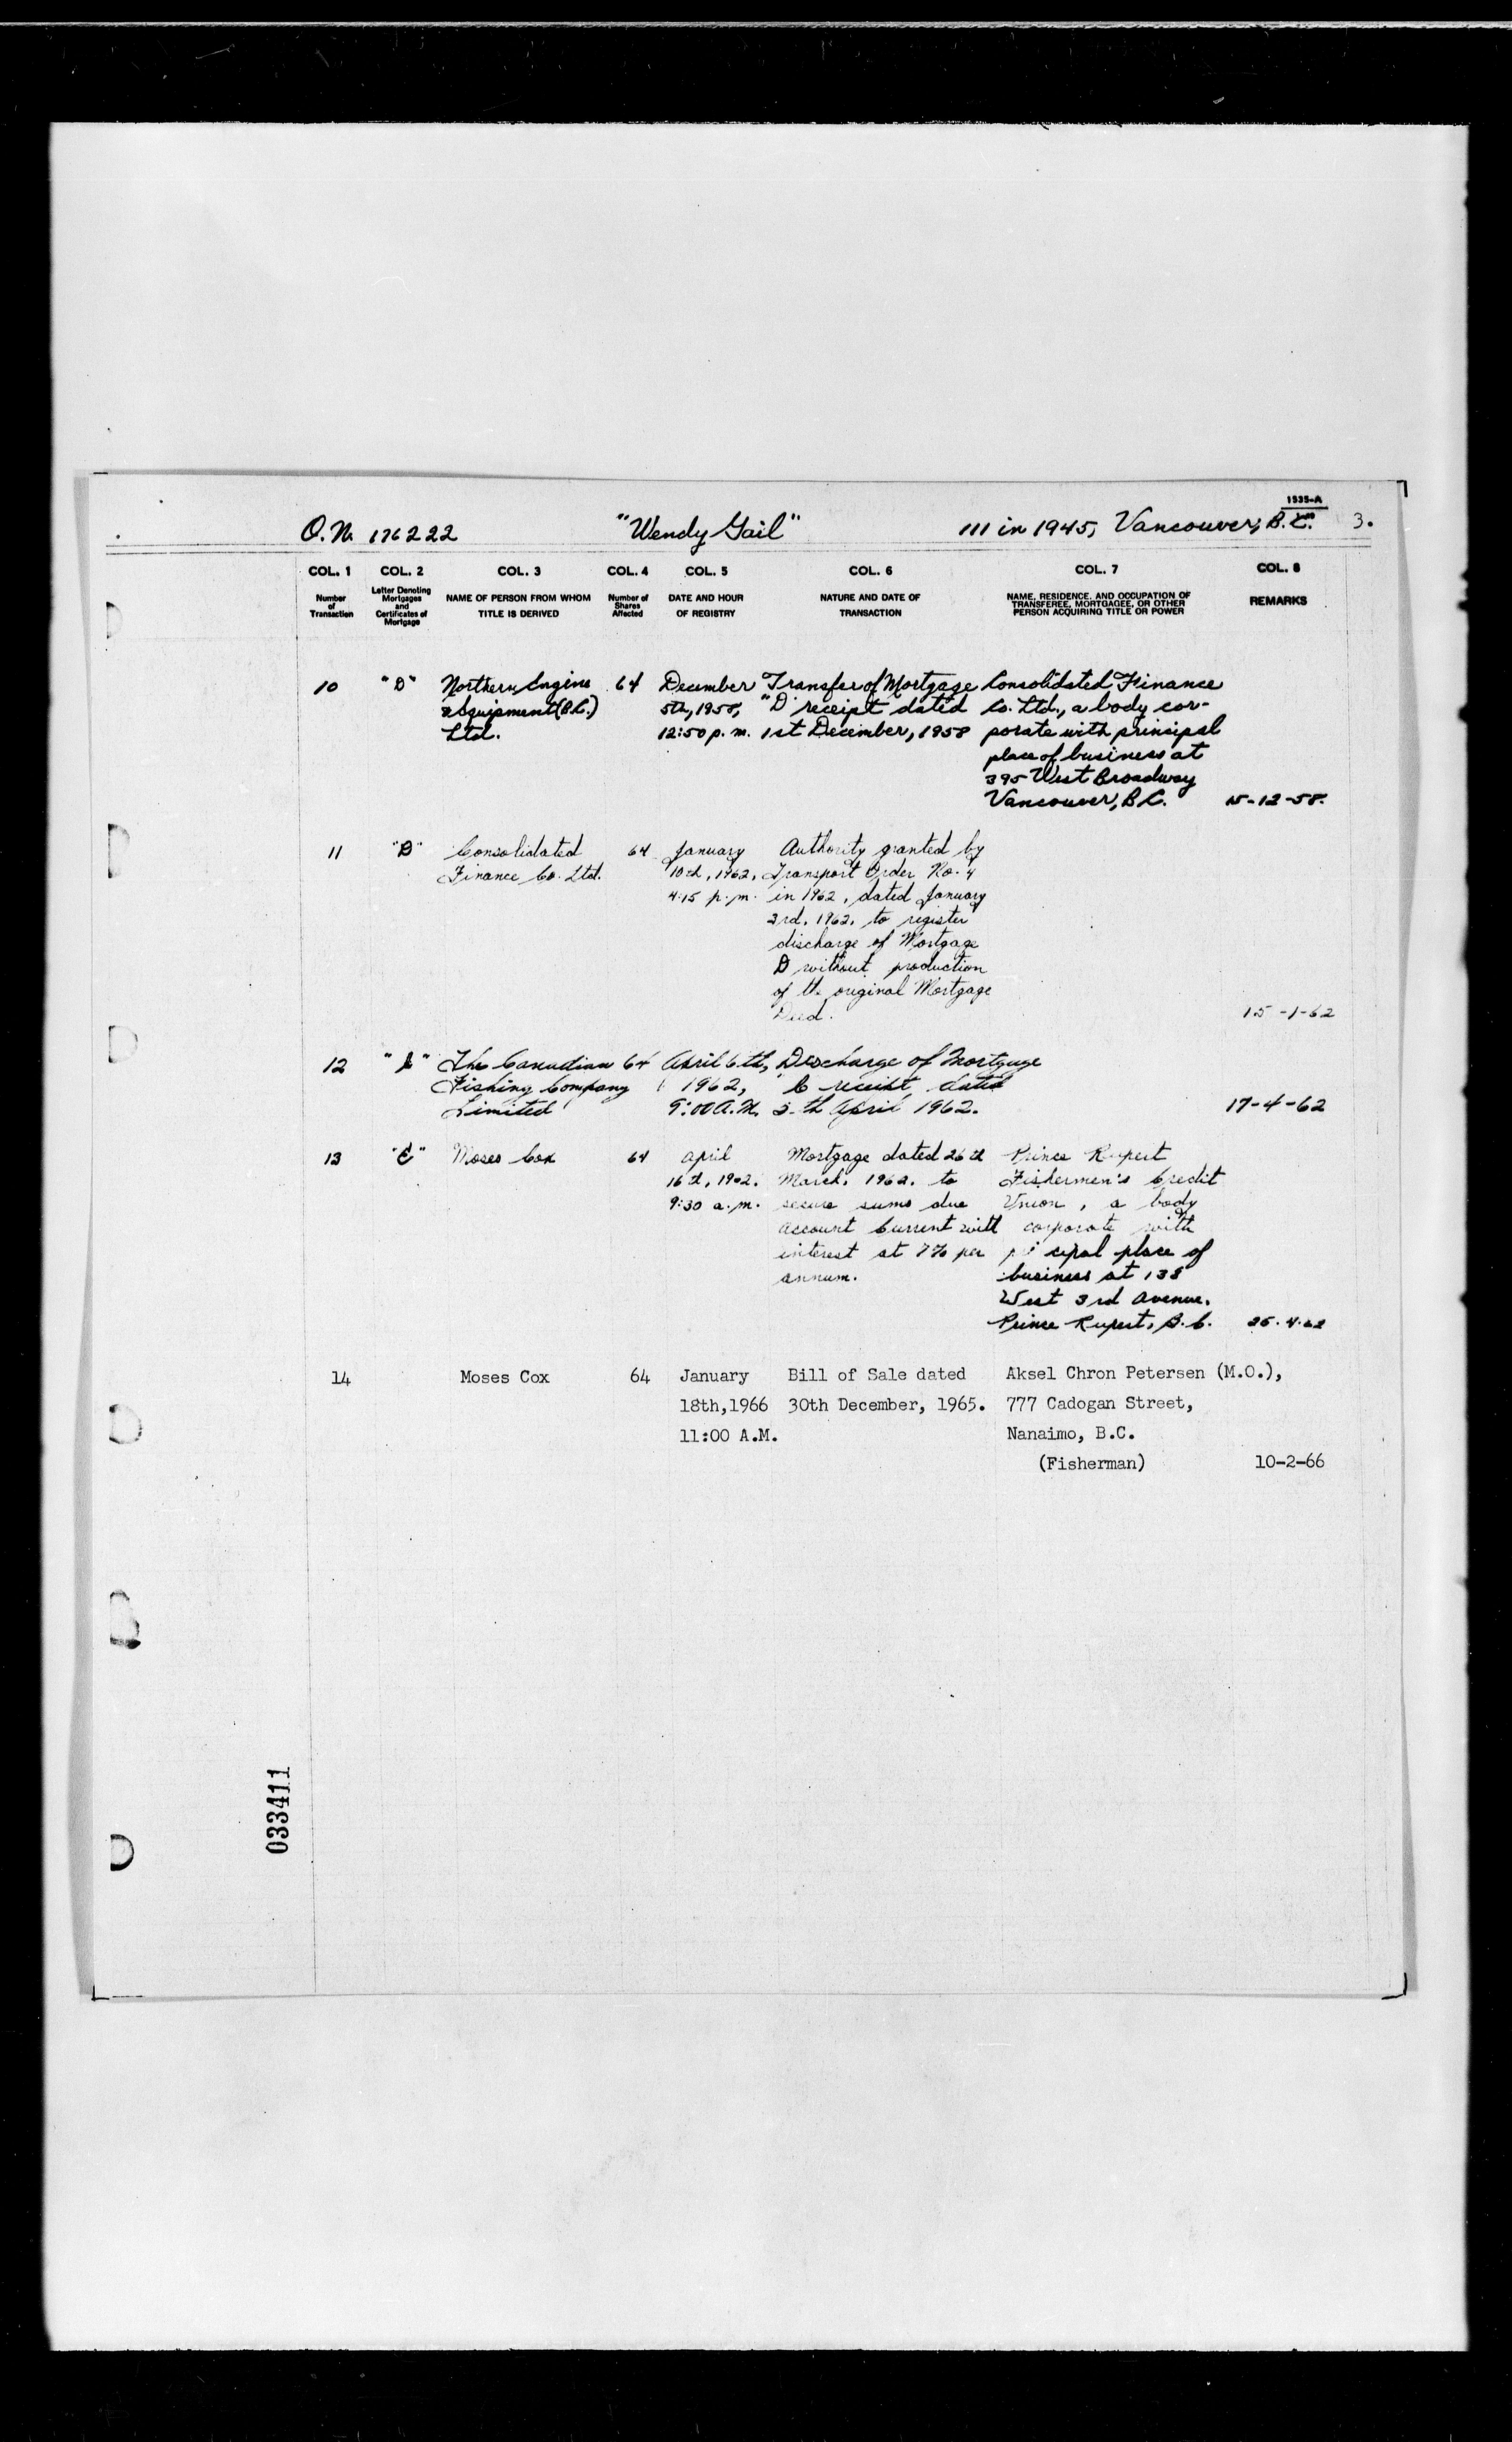 1535-A
O.N. 176222 "Wendy Gail" 111 in 1945, Vancouver, B.C. 3.
COL. 1 COL. 2 COL. 3 COL. 4 COL. 5 COL. 6 COL. 7 COL. 8
Number of Transaction
Letter Denoting Mortgages and Certificates of Mortgage
NAME OF PERSON FROM WHOM TITLE IS DERIVED
Number of Shares Affected
DATE AND HOUR OF REGISTRY
NATURE AND DATE OF TRANSACTION
NAME, RESIDENCE, AND OCCUPATION OF TRANSFEREE, MORTGAGEE, OR OTHER PERSON ACQUIRING TITLE OR POWER
REMARKS
10 "D" Northern Engine 64 December Transfer of Mortgage Consolidated Finance
& Equipment (B.C.) 5th, 1958, "D" receipt dated Co. Ltd., a body cor-
Ltd. 12:50 p.m. 1st December, 1958 porate with principal
place of business at
395 West Broadway
Vancouver, B.C. 15-12-58.
11 "D" Consolidated 64 January Authority granted by
Finance Co. Ltd. 10th, 1962, Transport Order No. 4
4.15 p.m. in 1962, dated January
3rd, 1962, to register
discharge of Mortgage
D without production
of the original Mortgage
Deed. 15-1-62
12 The Canadian 64 April 6th, Discharge of Mortgage
Fishing Company 1962, C receipt dated
Limited 9:00 A.M. 5th April 1962. 17-4-62
13 Moses Cox 64 April Mortgage dated 26th Prince Rupert
16th, 1962. March, 1962. to Fishermen's Credit
9:30 a.m. secure sums due Union, a body
Account Current with corporate with
interest at 7% per pri cipal place of
annum. business at 138
West 3rd Avenue,
Prince Rupert, B.C. 25.4.62
14 Moses Cox 64 January Bill of Sale dated Aksel Chron Petersen (M.O.),
18th,1966 30th December, 1965. 777 Cadogan Street,
11:00 A.M. Nanaimo, B.C.
(Fisherman) 10-2-66
033411